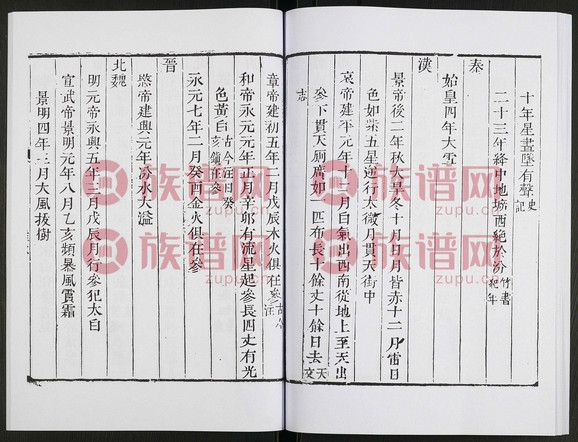 十年星晝墜有聲史記
二十三年絳中地墳西絕於汾竹書紀年
秦
始皇四年大雪
漢
景帝後二年秋大旱冬十月日月皆赤十二月雷日
色如紫五星逆行太微月貫天街中
哀帝建平元年十二月白氣出西南從地上至天出
參下貫天厠廣如一匹布長十餘丈十餘日去天文
志
章帝建初五年二月戊辰木火俱在參古今注
和帝永元元年正月辛卯有流星起參長四丈有光
色黃白古今注曰癸亥鎮在參
永元七年二月癸酉金火俱在參
晉
愍帝建興元年汾水大溢
北魏
明元帝永興五年三月戊辰月行參犯太白
宣武帝景明元年八月乙亥頻暴風霣霜
景明四年三月大風拔樹
族谱网
zupu.cn
族谱网
zupu.cn
族谱网
zupu.cn
族谱网
zupu.cn